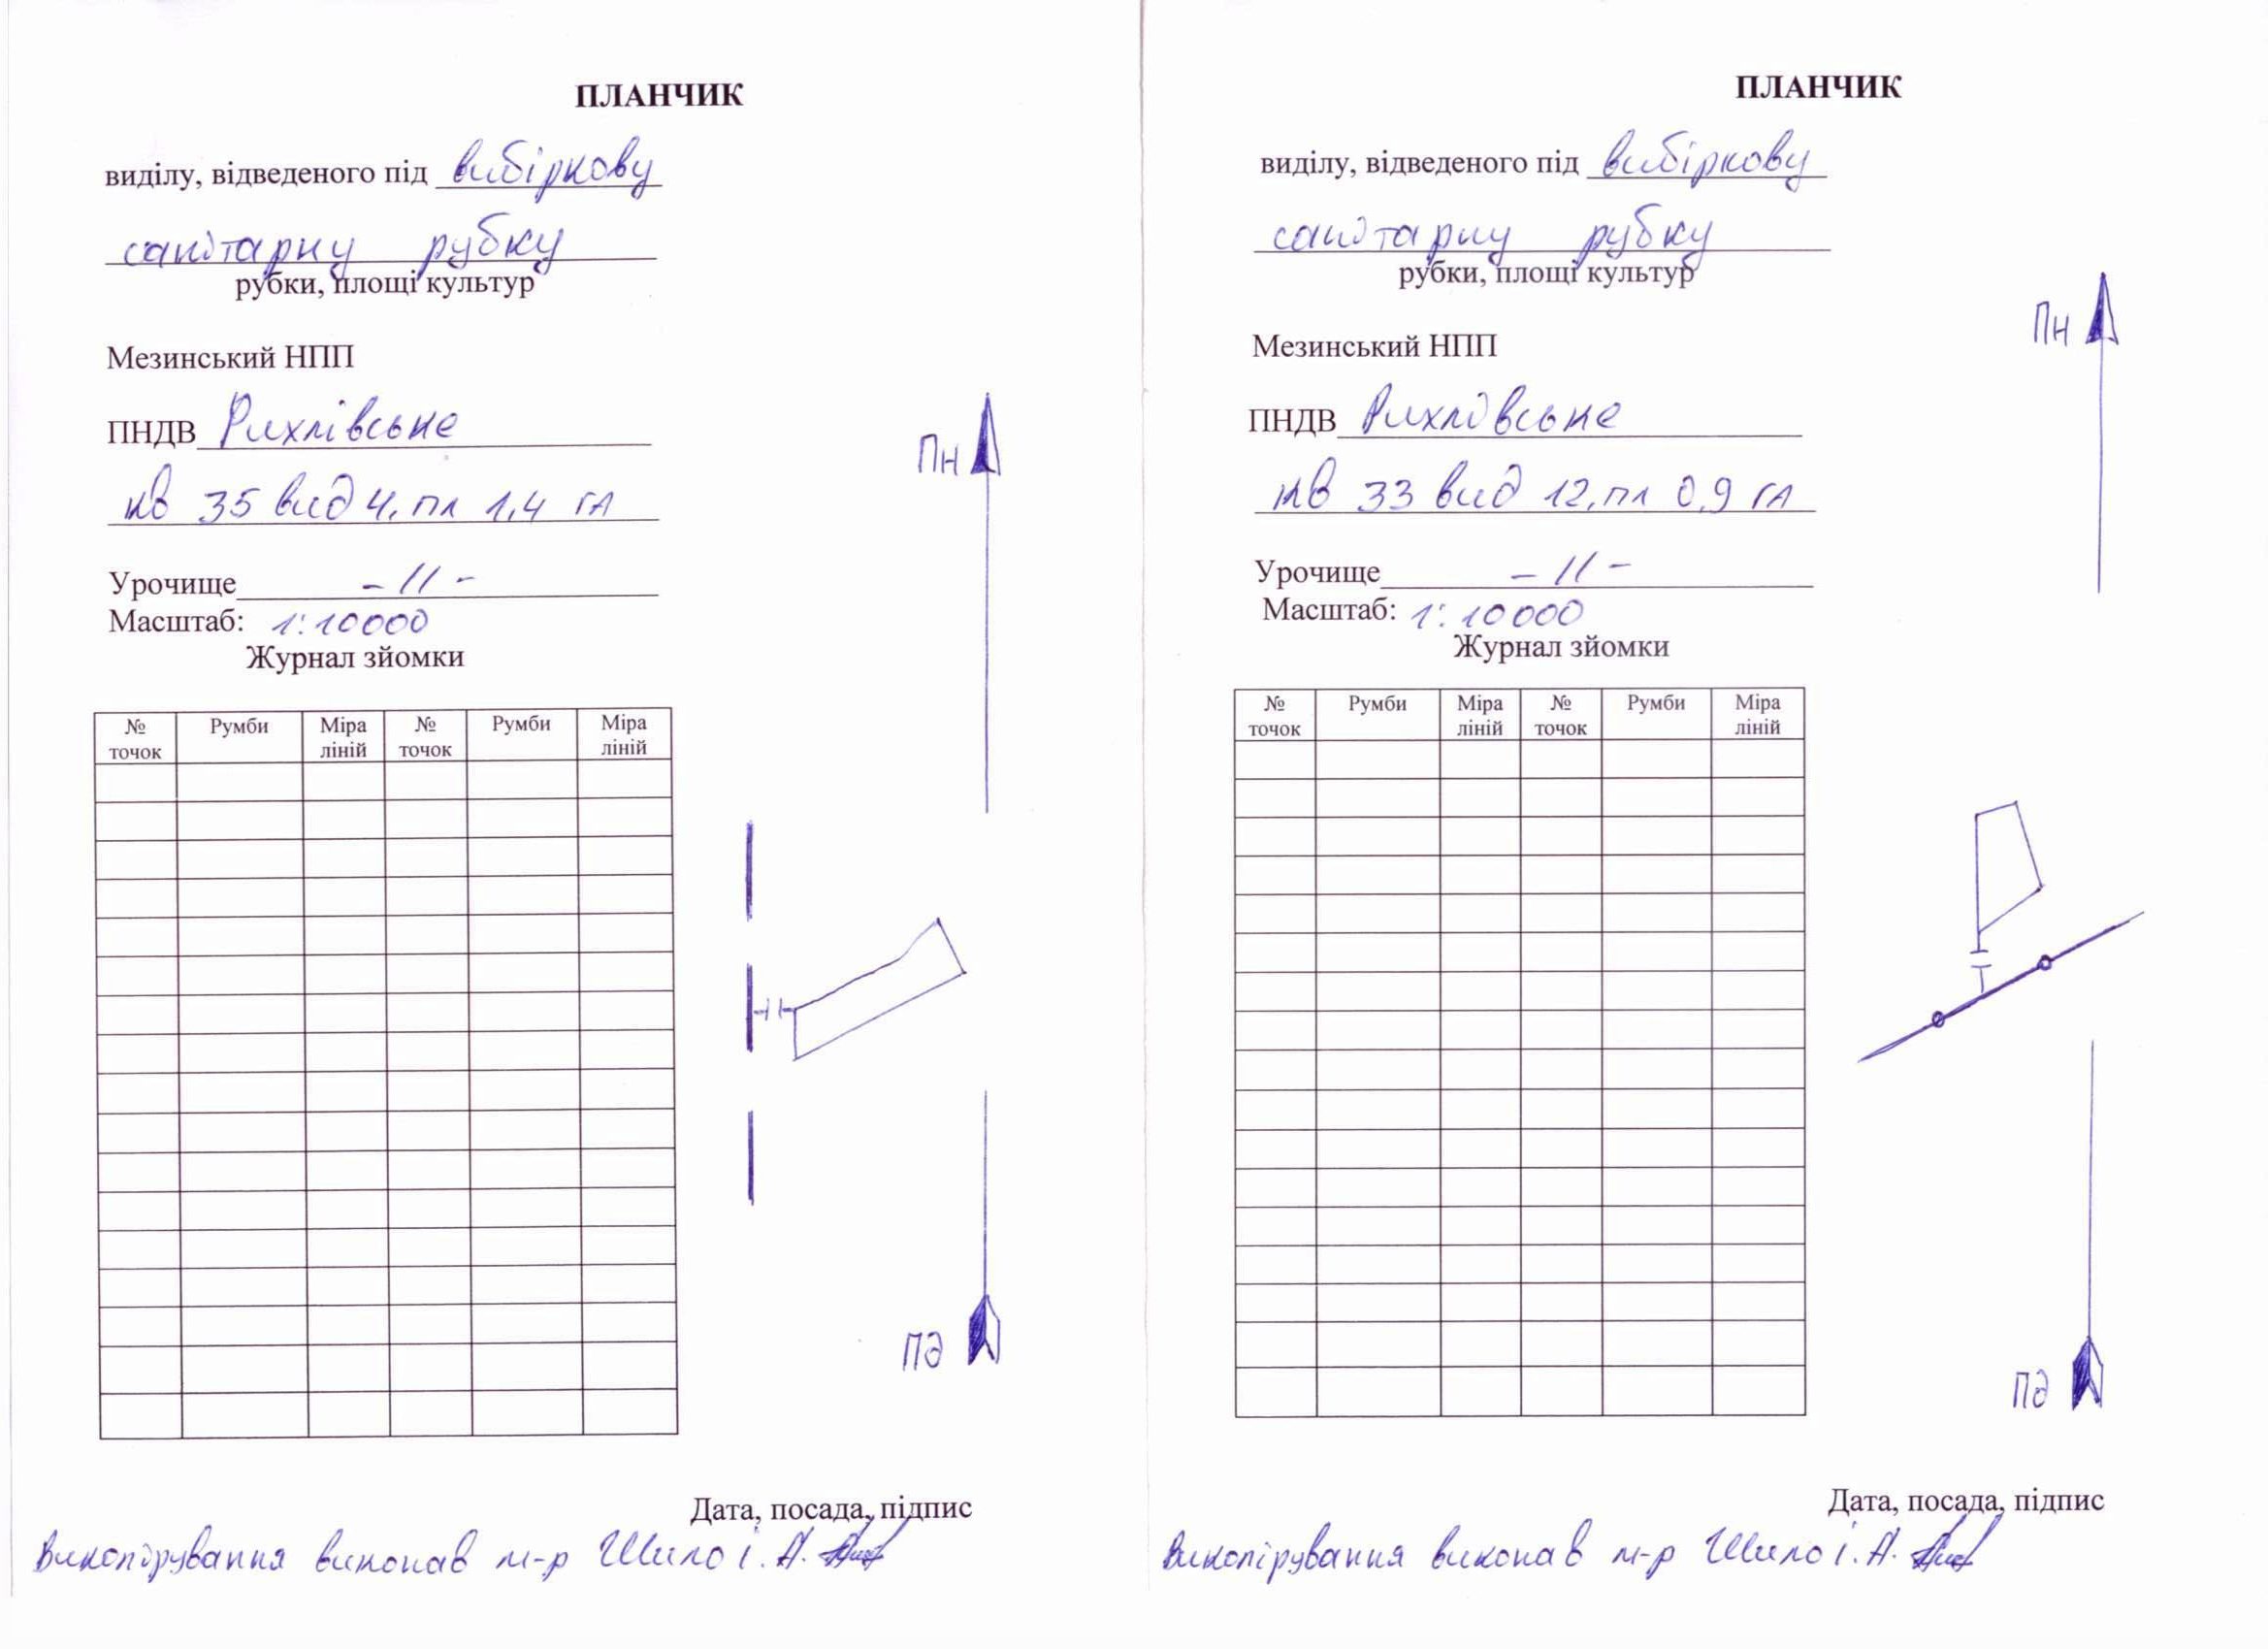 ПЛАНЧИК
виділу, відведеного під вибіркову
санітарну рубку
рубки, площі культур
Мезинський НПП
ПНДВ Рихлівське
кв 35 вид 4, пл 1,4 га
Урочище - // -
Масштаб: 1:10000
Журнал зйомки
№ точок Румби Міра ліній № точок Румби Міра ліній
Пн
Пд
Дата, посада, підпис
Викопірування виконав м-р Шило І. А.
ПЛАНЧИК
виділу, відведеного під вибіркову
санітарну рубку
рубки, площі культур
Мезинський НПП
ПНДВ Рихлівське
кв 33 вид 12, пл 0,9 га
Урочище - // -
Масштаб: 1:10000
Журнал зйомки
№ точок Румби Міра ліній № точок Румби Міра ліній
Пн
Пд
Дата, посада, підпис
Викопірування виконав м-р Шило І. А.